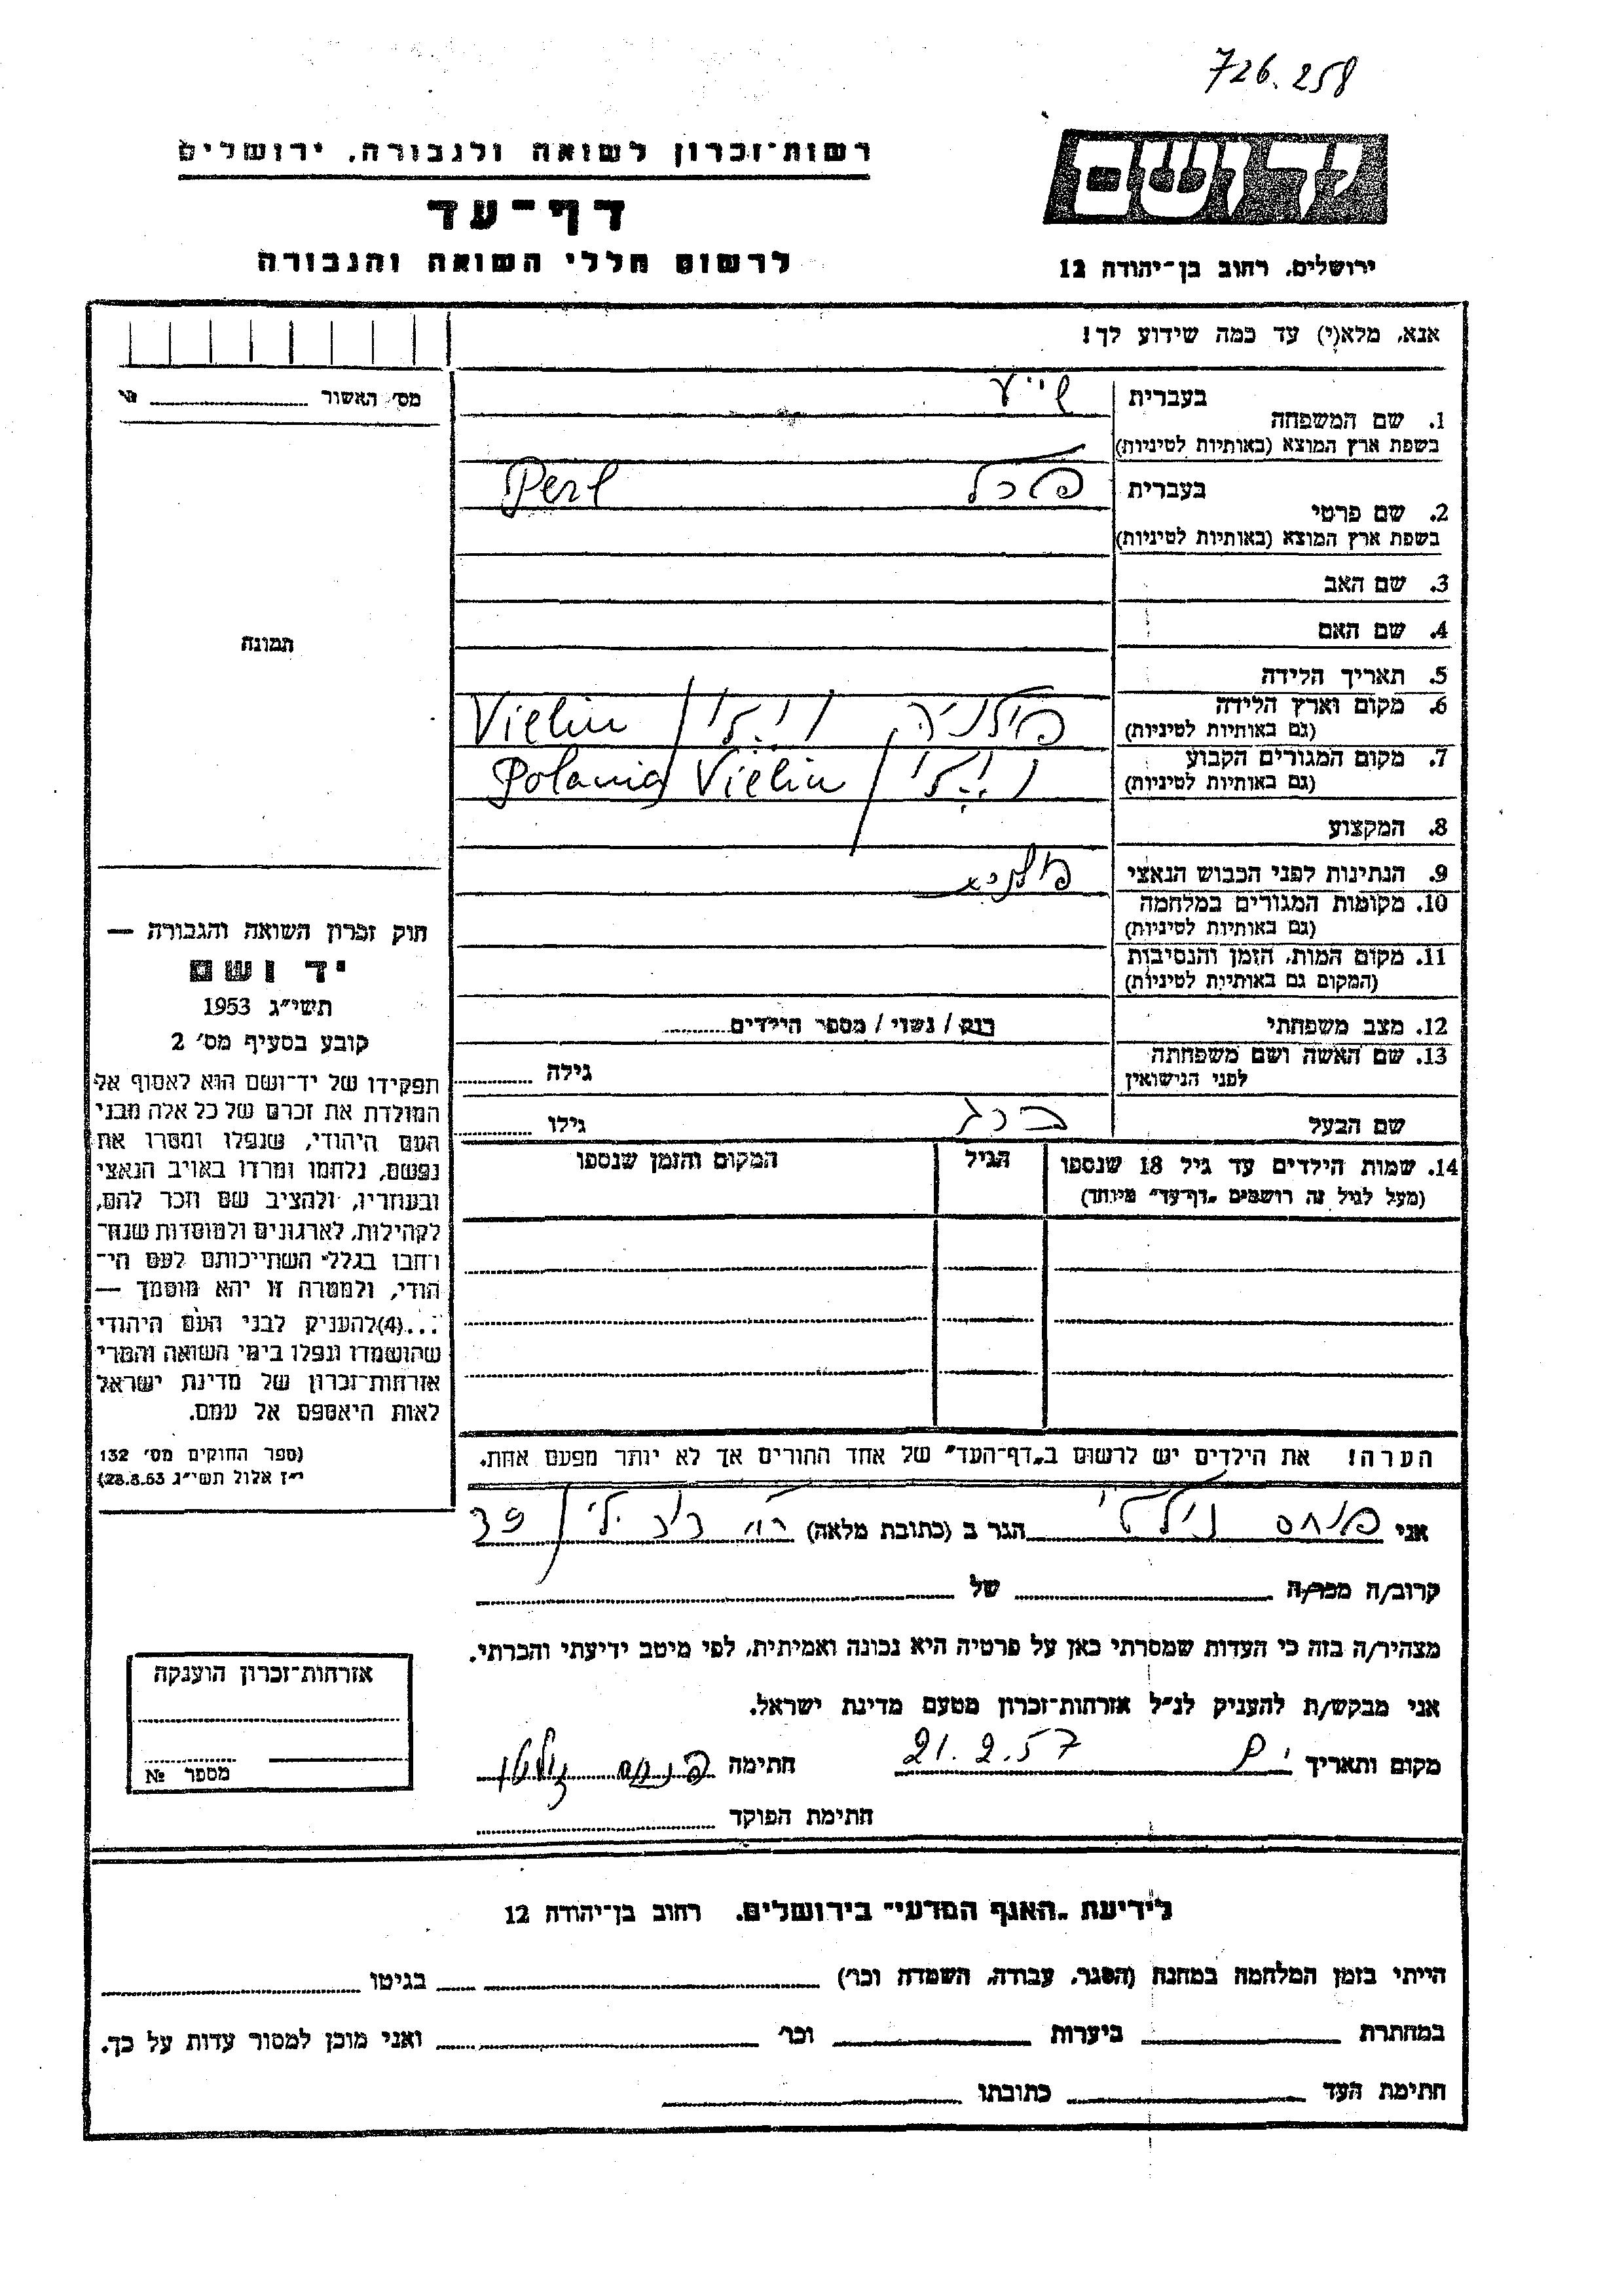 726.258
יד ושם
ירושלים, רחוב בן־יהודה 12
רשות־זכרון לשואה ולגבורה, ירושלים
דף־עד
לרשום חללי השואה והגבורה
אנא, מלא(י) עד כמה שידוע לך!
מס׳ האשור
1. שם המשפחה
בעברית
בשפת ארץ המוצא (באותיות לטיניות)
2. שם פרטי
בעברית פרל Perl
בשפת ארץ המוצא (באותיות לטיניות)
3. שם האב
4. שם האם
5. תאריך הלידה
6. מקום וארץ הלידה פולניה Vielin
(גם באותיות לטיניות)
7. מקום המגורים הקבוע Vielin Polania
(גם באותיות לטיניות)
8. המקצוע
9. הנתינות לפני הכבוש הנאצי
10. מקומות המגורים במלחמה
(גם באותיות לטיניות)
11. מקום המות, הזמן והנסיבות
(המקום גם באותיות לטיניות)
12. מצב משפחתי רווק / נשוי / מספר הילדים
13. שם האשה ושם משפחתה
לפני הנישואין גילה
שם הבעל ברג גילו
14. שמות הילדים עד גיל 18 שנספו הגיל המקום והזמן שנספו
(מעל לגיל זה רושמים „דף־עד״ מיוחד)
הערה! את הילדים יש לרשום ב„דף־העד״ של אחד ההורים אך לא יותר מפעם אחת.
תמונה
חוק זכרון השואה והגבורה —
יד ושם
תשי״ג 1953
קובע בסעיף מס׳ 2
תפקידו של יד־ושם הוא לאסוף אל
המולדת את זכרם של כל אלה מבני
העם היהודי, שנפלו ומסרו את
נפשם, נלחמו ומרדו באויב הנאצי
ובעוזריו, ולהציב שם וזכר להם,
לקהילות, לארגונים ולמוסדות שנח־
רחבו בגלל השתייכותם לעם הי־
הודי, ולמטרה זו יהא מוסמך —
...(4)להעניק לבני העם היהודי
שהושמדו ונפלו בימי השואה והמרי
אזרחות־זכרון של מדינת ישראל
לאות היאספם אל עמם.
(ספר החוקים מס׳ 132
י״ז אלול תשי״ג 28.8.53)
אני פנחס הגר ב (כתובת מלאה) 39
קרוב/ה מכר/ה של
מצהיר/ה בזה כי העדות שמסרתי כאן על פרטיה היא נכונה ואמיתית, לפי מיטב ידיעתי והכרתי.
אני מבקש/ת להעניק לנ״ל אזרחות־זכרון מטעם מדינת ישראל.
מקום ותאריך 21.2.57 חתימה פנחס
חתימת הפוקד
אזרחות־זכרון הוענקה
מספר №
לידיעת „האגף המדעי״ בירושלים, רחוב בן־יהודה 12
הייתי בזמן המלחמה במחנה (הסגר, עבודה, השמדה וכו׳) בגיטו
במחתרת ביערות וכו׳ ואני מוכן למסור עדות על כך.
חתימת העד כתובתו